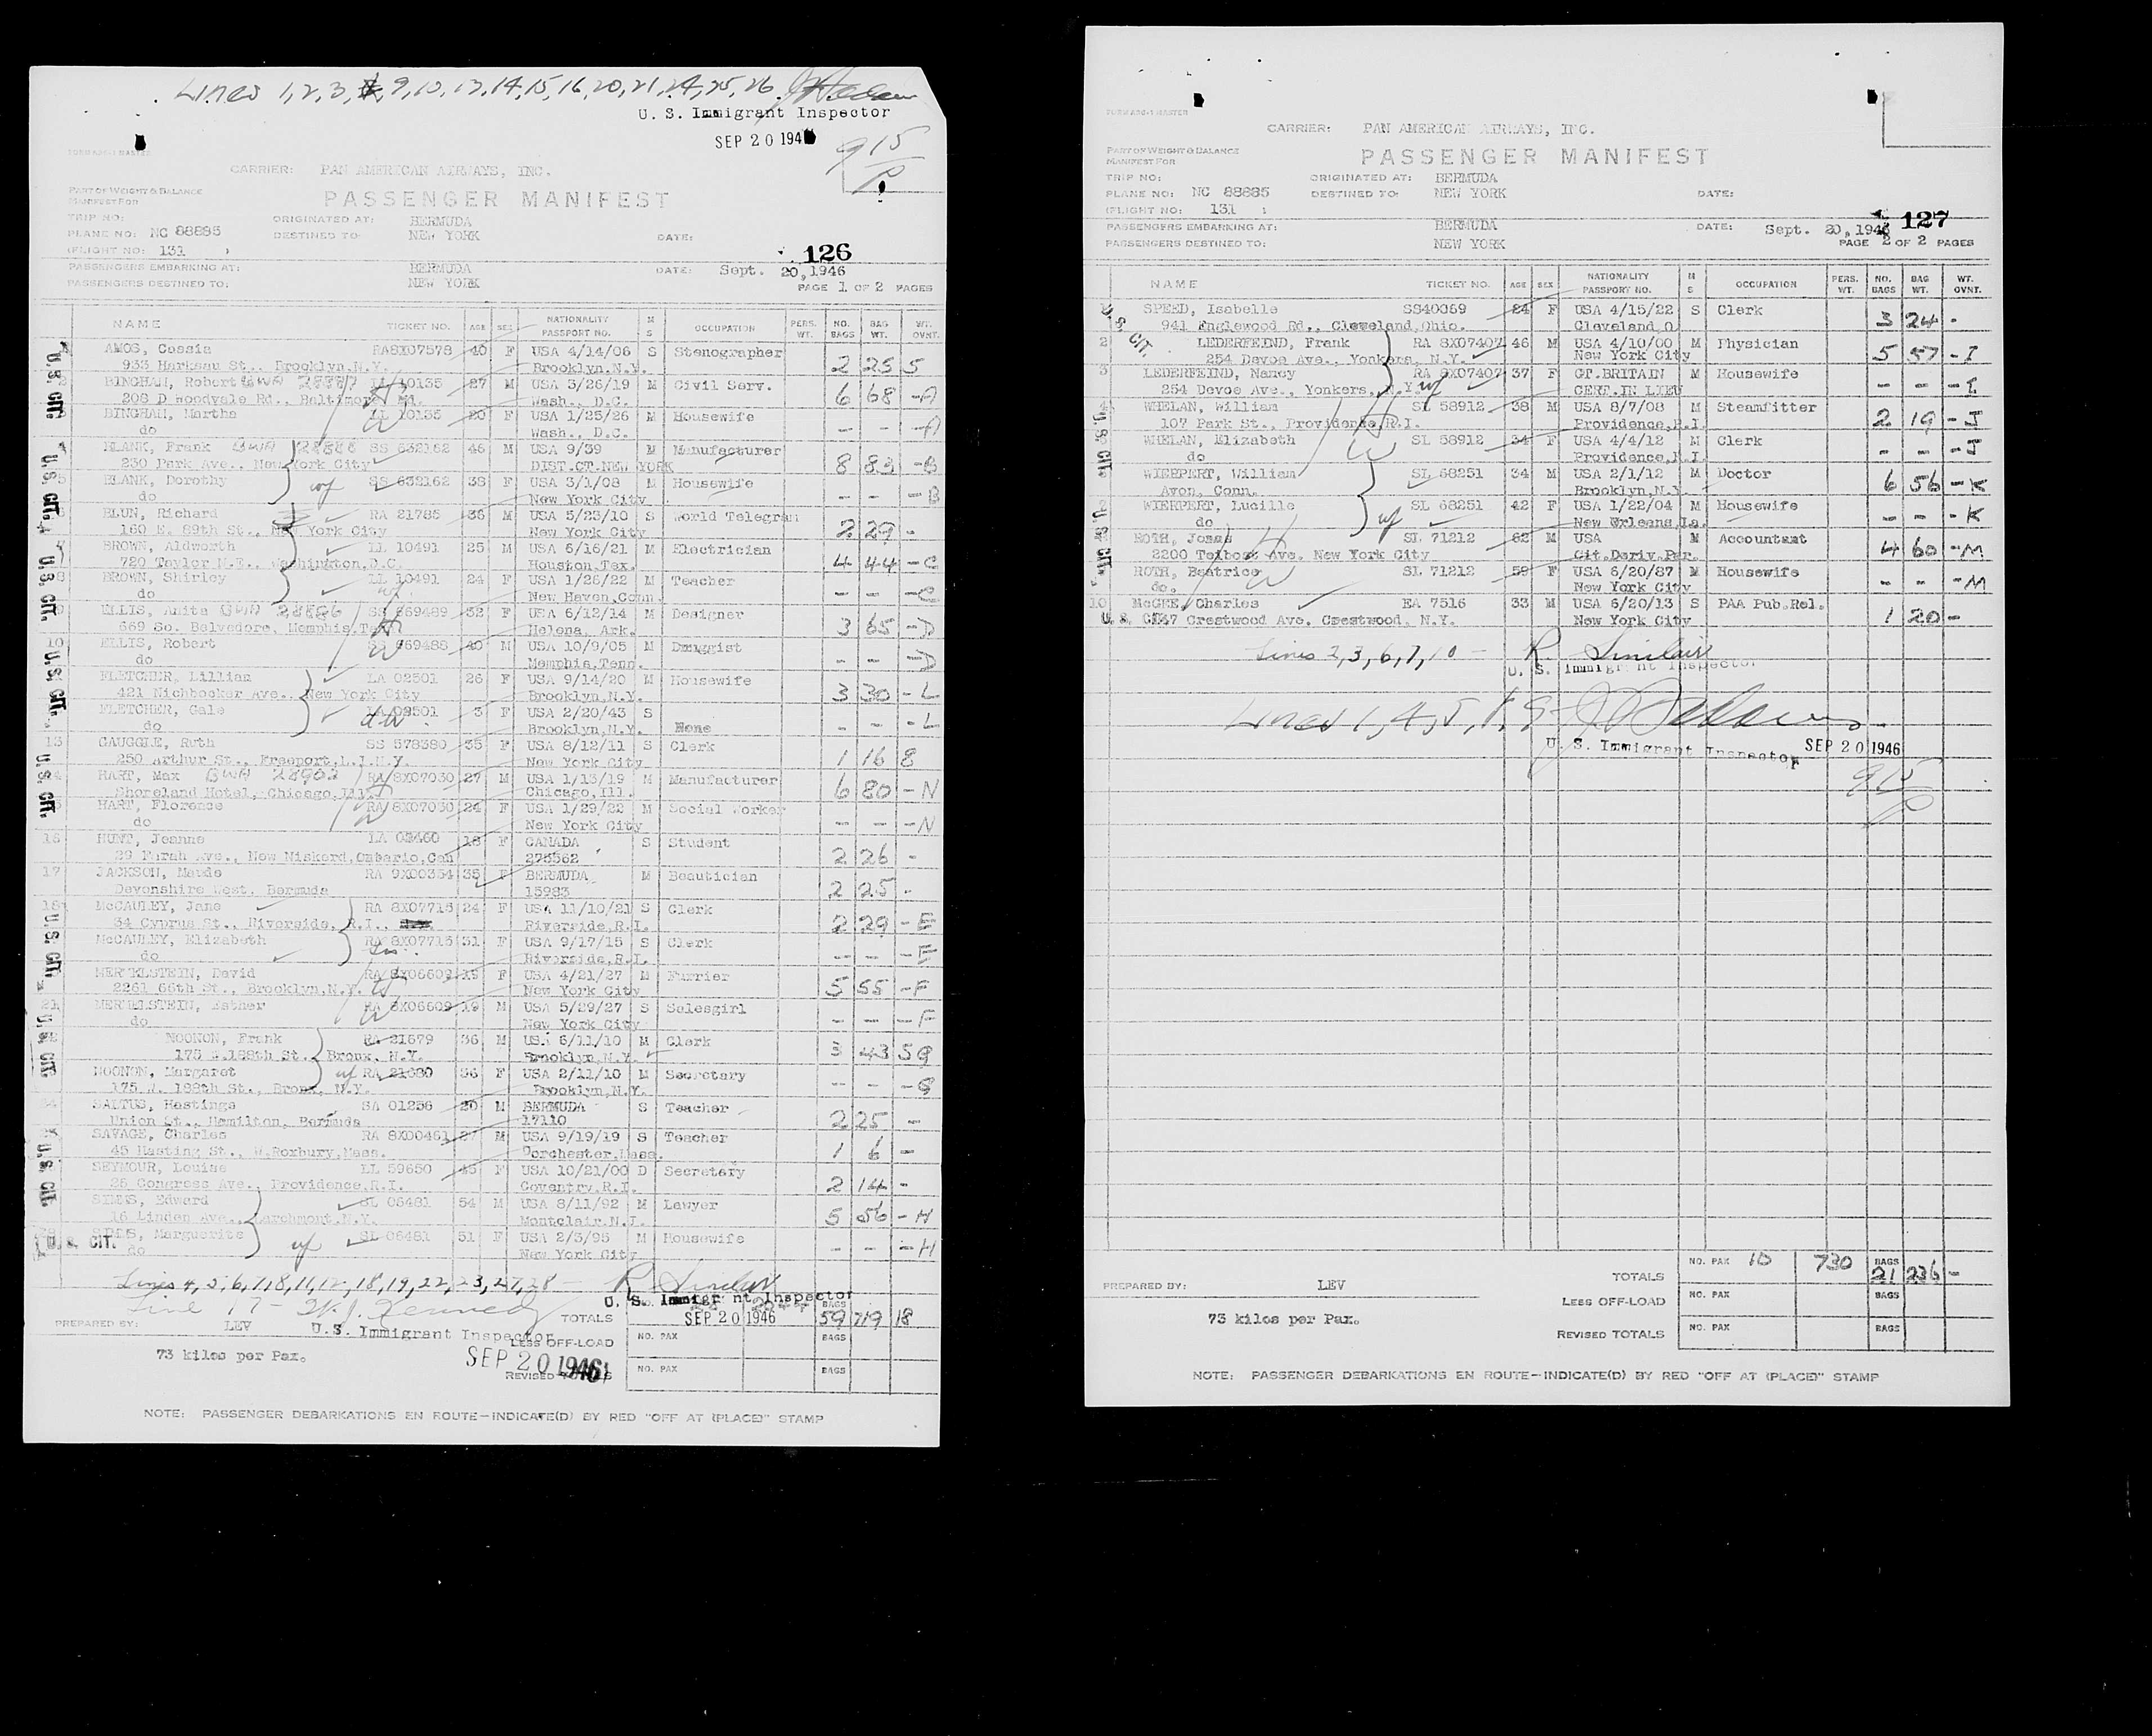 Lines 1, 2, 3, 9, 10, 13, 14, 15, 16, 20, 21, 24, 25, 26
U. S. Immigrant Inspector
SEP 20 194
9 15/P
CARRIER: PAN AMERICAN AIRWAYS, INC.
PART OF WEIGHT & BALANCE
MANIFEST FOR
PASSENGER MANIFEST
TRIP NO: ORIGINATED AT: BERMUDA
PLANE NO: NC 88885 DESTINED TO: NEW YORK DATE:
(FLIGHT NO: 131 )
126
PASSENGERS EMBARKING AT: BERMUDA DATE: Sept. 20, 1946
PASSENGERS DESTINED TO: NEW YORK PAGE 1 OF 2 PAGES
NAME TICKET NO. AGE SEX NATIONALITY PASSPORT NO. M S OCCUPATION PERS. WT. NO. BAGS BAG WT. WT. OVNT.
AMOS, Cassia RA8X07578 40 F USA 4/14/06 S Stenographer
933 St., Brooklyn, N.Y. Brooklyn, N.Y. 2 25 5
BINGHAM, Robert LL 10135 27 M USA 3/26/19 M Civil Serv.
208 D Woodvale Rd., Baltimore Md. Wash., D.C. 6 68 -A
BINGHAM, Martha LL 10135 20 F USA 1/25/26 M Housewife
do Wash., D.C. - - -A
BLANK, Frank SS 632162 46 M USA 9/39 M Manufacturer
230 Park Ave., New York City DIST.CT.NEW YORK 8 83 -B
BLANK, Dorothy SS 632162 38 F USA 3/1/08 M Housewife
do wf New York City - - -B
BLUN, Richard RA 21785 36 M USA 5/23/10 S World Telegram
160 E. 89th St., New York City New York City 2 29 -
BROWN, Aldworth LL 10491 25 M USA 6/16/21 M Electrician
720 Taylor N.E., Washington, D.C. Houston, Tex. 4 44 -C
BROWN, Shirley LL 10491 24 F USA 1/26/22 M Teacher
do wf New Haven, Conn. - - -C
ELLIS, Anita SS 669489 32 F USA 6/12/14 M Designer
669 So. Belvedore, Memphis, Tenn Helena, Ark. 3 65 -D
10 ELLIS, Robert SS 669488 40 M USA 10/9/05 M Druggist
do Memphis, Tenn. - - -D
FLETCHER, Lillian LA 02501 26 F USA 9/14/20 M Housewife
421 Nichbocker Ave., New York City Brooklyn, N.Y. 3 30 -L
FLETCHER, Gale LA 02501 3 F USA 2/20/43 S
do Brooklyn, N.Y. None - - -L
13 GAUGGLE, Ruth SS 578380 35 F USA 8/12/11 S Clerk
250 Arthur St., Freeport, L.I.N.Y. New York City 1 16 8
HART, Max RA 8X07030 27 M USA 1/13/19 M Manufacturer
Shoreland Hotel, Chicago, Ill. Chicago, Ill. 6 80 -N
HART, Florence RA 8X07030 24 F USA 1/29/22 M Social Worker
do New York City - - -N
16 HUNT, Jeanne LA 03460 18 F CANADA S Student
29 Farah Ave., New Niskerd, Ontario, Can 275562 2 26 -
17 JACKSON, Maude RA 9X00354 35 F BERMUDA M Beautician
Devonshire West, Bermuda 15983 2 25 -
18 McCAULEY, Jane RA 8X07715 24 F USA 11/10/21 S Clerk
34 Cyprus St., Riverside, R.I. Riverside, R.I. 2 29 -E
McCAULEY, Elizabeth RA 8X07715 31 F USA 9/17/15 S Clerk
do Riverside, R.I. - - -E
MERMELSTEIN, David RA 8X06609 19 F USA 4/21/27 M Furrier
2261 66th St., Brooklyn, N.Y. New York City 5 55 -F
21 MERMELSTEIN, Esther RA 8X06609 19 M USA 5/29/27 S Salesgirl
do New York City - - -F
NOONON, Frank RA 21679 36 M USA 6/11/10 M Clerk
175 W.188th St., Bronx, N.Y. Brooklyn, N.Y. 3 43 5G
NOONON, Margaret RA 21680 36 F USA 2/11/10 M Secretary
175 W. 188th St., Bronx, N.Y. Brooklyn, N.Y. - - -G
SALTUS, Hastings SA 01256 20 M BERMUDA S Teacher
Union St., Hamilton, Bermuda 17110 2 25 -
SAVAGE, Charles RA 8X00461 27 M USA 9/19/19 S Teacher
45 Hasting St., W.Roxbury, Mass. Dorchester, Mass. 1 6 -
SEYMOUR, Louise LL 59650 45 F USA 10/21/00 D Secretary
25 Congress Ave., Providence, R.I. Coventry, R.I. 2 14 -
SIMMS, Edward SL 06481 54 M USA 8/11/92 M Lawyer
16 Linden Ave., Larchmont, N.Y. Montclair, N.J. 5 56 -H
SIMMS, Marguerite SL 06481 51 F USA 2/3/95 M Housewife
do wf New York City - - -H
U.S. CIT.
Lines 4, 5, 6, 7, 8, 11, 12, 18, 19, 22, 23, 27, 28 - R. Sinclair
U. S. Immigrant Inspector
Line 17 - W. J. Kennedy
TOTALS SEP 20 1946 BAGS 59 719 18
PREPARED BY: LEV U.S. Immigrant Inspector
LESS OFF-LOAD NO. PAX BAGS
73 kilos per Pax. SEP 20 1946
REVISED TOTALS NO. PAX BAGS
NOTE: PASSENGER DEBARKATIONS EN ROUTE—INDICATE(D) BY RED "OFF AT (PLACE)" STAMP
CARRIER: PAN AMERICAN AIRWAYS, INC.
PART OF WEIGHT & BALANCE
MANIFEST FOR
PASSENGER MANIFEST
TRIP NO: ORIGINATED AT: BERMUDA
PLANE NO: NC 88885 DESTINED TO: NEW YORK DATE:
(FLIGHT NO: 131 )
127
PASSENGERS EMBARKING AT: BERMUDA DATE: Sept. 20, 1946
PASSENGERS DESTINED TO: NEW YORK PAGE 2 OF 2 PAGES
NAME TICKET NO. AGE SEX NATIONALITY PASSPORT NO. M S OCCUPATION PERS. WT. NO. BAGS BAG WT. WT. OVNT.
SPEED, Isabelle SS40059 24 F USA 4/15/22 S Clerk
941 Englewood Rd., Cleveland, Ohio. Cleveland, O. 3 24 -
2 LEDERFEIND, Frank RA 8X07407 46 M USA 4/10/00 M Physician
254 Devoe Ave., Yonkers, N.Y. New York City 5 57 -I
3 LEDERFEIND, Nancy RA 8X07407 37 F GT.BRITAIN M Housewife
254 Devoe Ave., Yonkers, N.Y. wf CERT.IN LIEU - - -I
WHELAN, William SL 58912 38 M USA 8/7/08 M Steamfitter
107 Park St., Providence, R.I. Providence, R.I. 2 19 -J
WHELAN, Elizabeth SL 58912 34 F USA 4/4/12 M Clerk
do Providence, R.I. - - -J
WIERPERT, William SL 68251 34 M USA 2/1/12 M Doctor
Avon, Conn. Brooklyn, N.Y. 6 56 -K
WIERPERT, Lucille SL 68251 42 F USA 1/22/04 M Housewife
do wf New Orleans, La. - - -K
ROTH, Jonas SL 71212 62 M USA M Accountant
2200 Ave. New York City Cit.Deriv.Par. 4 60 -M
ROTH, Beatrice SL 71212 59 F USA 6/20/87 M Housewife
do. New York City - - -M
10 McGEE, Charles EA 7516 33 M USA 6/20/13 S PAA Pub.Rel.
Crestwood Ave. Crestwood, N.Y. New York City 1 20 -
Lines 2, 3, 6, 7, 10 - R. Sinclair
U. S. Immigrant Inspector
Lines 1, 4, 5, 8, 9 -
U. S. Immigrant Inspector SEP 20 1946
9 15/P
NO. PAX 10 730 BAGS
TOTALS 21 236 -
PREPARED BY: LEV
LESS OFF-LOAD NO. PAX BAGS
73 kilos per Pax.
REVISED TOTALS NO. PAX BAGS
NOTE: PASSENGER DEBARKATIONS EN ROUTE—INDICATE(D) BY RED "OFF AT (PLACE)" STAMP